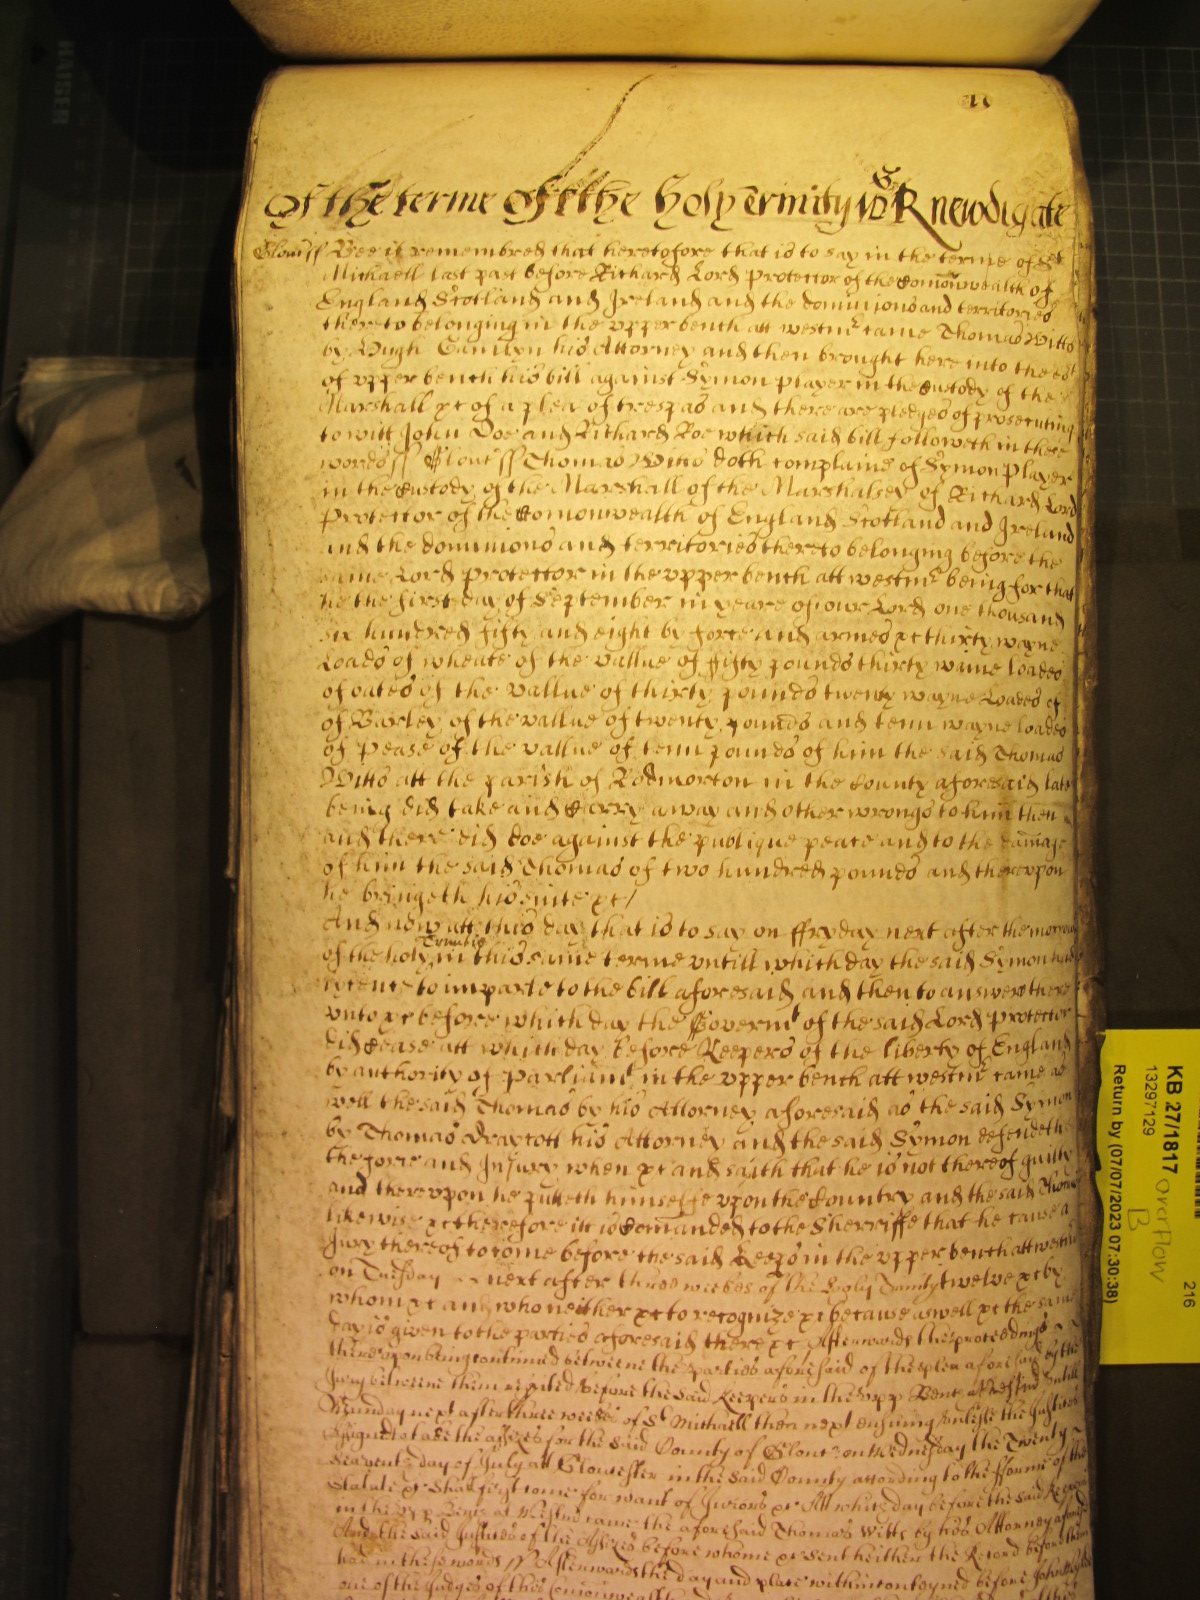 11
Of the terme Of the Holy Trinity 1659 R newdigate
Gloucs ss Bee it remembred that heretofore that is to say in the terme of St
Michaell last past before Richard Lord Protector of the Comonwealth of
England Scotland and Ireland and the dominions and territories
thereto belonging in the upper bench att westmr came Thomas Witts
by Hugh his Attorney and then brought here into the Cot
of upper bench his bill against Symon Player in the Custody of the
Marshall xc of a plea of trespas and there are pledges of prosecuting
to witt John Doe and Richard Roe which said bill followeth in these
words ss Glouc ss Thomas Witts doth complaine of Symon Player
in the Custody of the Marshall of the Marshalsey of Richard Lord
Protector of the Comonwealth of England Scotland and Ireland
and the dominions and territories thereto belonging before the
same Lord Protector in the upper bench att westmr being for that
he the first day of September in yeare of our Lord one thousand
six hundred fifty and eight by force and armes xc thirty wayne
Loads of wheate of the vallue of fifty pounds thirty waine loades
of oates of the vallue of thirty pounds twenty wayne Loades of
of Barley of the vallue of twenty pounds and tenn wayne loades
of Pease of the vallue of tenn pounds of him the said Thomas
Witts att the parish of Rodmorton in the County aforesaid late
being did take and Carry away and other wrongs to him then
and there did doe against the publique peace and to the damage
of him the said Thomas of two hundred pounds and thereupon
he bringeth his suite xc /
And now att this day that is to say on ffryday next after the morrow
of the holy Trinitie in this same terme untill which day the said Symon had
lycence to imparle to the bill aforesaid and then to answere there
unto xc before which day the Governmt of the said Lord Protector
did Cease att which day before Keepers of the liberty of England
by authority of Parliamt in the upper bench att westmr came as
well the said Thomas by his Attorney aforesaid as the said Symon
by Thomas Draycott his Attorney and the said Symon defendeth
the force and Injury when xc and saith that he is not thereof guilty
and thereupon he putteth himselfe upon the Country and the said Thomas
likewise xc therefore itt is Comanded to the Sherriffe that he cause a
Jury thereof to come before the said Keeps in the upper bench att westmr
on Tuesday next after three weekes of the Holy Trinity twelve xc by
whom xc and who neither xc to recognize xc because aswell xc the same
day is given to the parties aforesaid there xc Afterwards the proceedings
thereupon being continued betweene the parties aforesaid of the plea aforesaid by the
Jury betweene them respited before the said Keepers in the Upp Bench at Westmr untill
Munday next after three weekes of St Michaell then next ensuing unlesse the Justices
assigned to take the assizes for the said County of Glouc on Wednesday the Twenty
Seaventh day of July att Gloucester in the said County according to the fforme of the
statute xc shall first come for want of Jurors xc Att which day before the said Keepers
in the Upp Bench at Westmr came the aforesaid Thomas Witts by his Attorney aforesd
And the said Justices of the Assizes before whome xc sent heither the Record before them
had in these words ss Afterwards the day and place within contayned before John
one of the Judges of the Comonwealth
KB 27/1817 overflow
B
13297129
216
Return by (07/07/2023 07:30:38)
KAISER